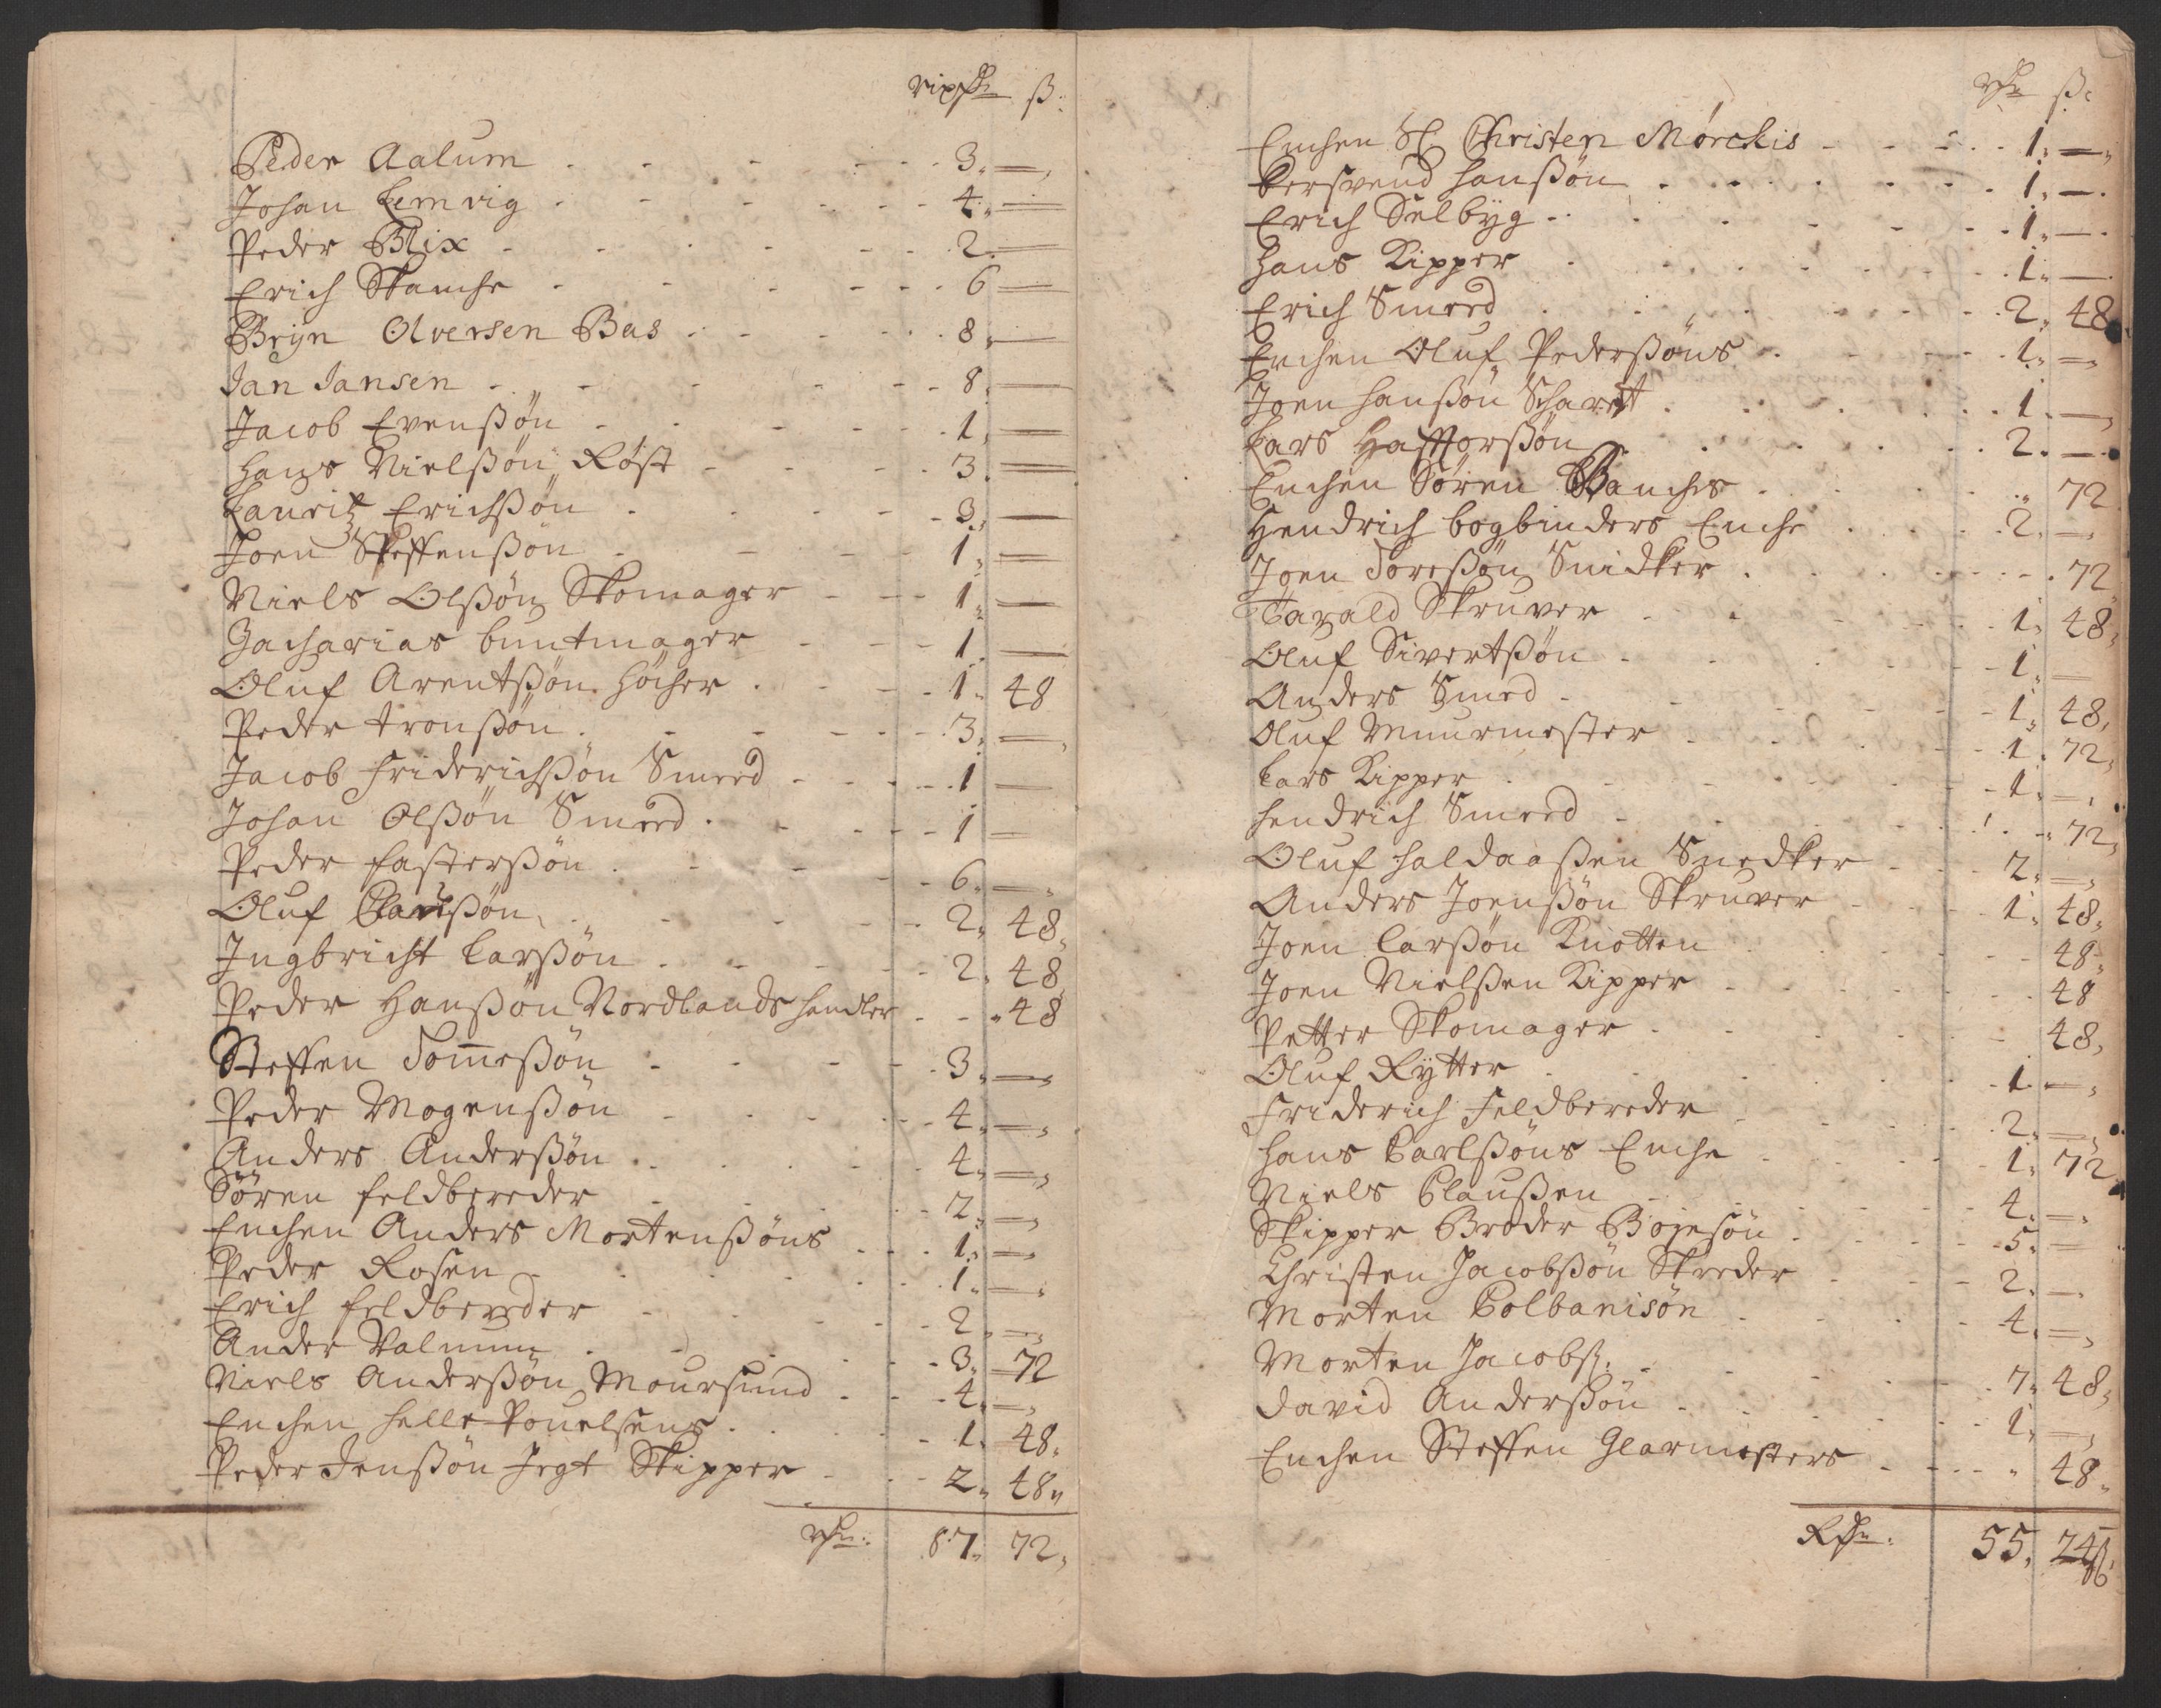 ß:
Peder Aalum 3. —
Johan Lemvig 4. —
Peder Blix 2. —
Erich Stanche 6 —
Brÿn Olversen Bas 8. —
Jan Jansen 8. —
Jacob Evenßøn 1. —
Hans Nielßøn Røst 3. —
Lauritz Erichßøn 3. —
Joen Steffenßøn 1. —
Niels Olßøn Skomager 1. —
Zacharias buntmager 1. —
Oluf Arentßøn Høcher 1. 48
Peder tronßøn 3. —
Jacob Friderichßøn Smed 1 —
Johan Olßøn Smed 1 —
Peder fasterßøn 6. —
Oluf Claußøn 2. 48
Ingbricht Larßøn 2. 48
Peder Hanßøn Nordlands handler 48
Steffen Tomeßøn 3. —
Peder Mogenßøn 4. —
Anders Anderßøn 4. —
Søren feldbereder 2. —
Enchen Anders Mortenßøns 1. —
Peder Rosen 1. —
Erich feldbereder 2. —
Ander Valmum 3. 72
Niels Anderßøn Moursund 4. —
Enchen Helle Pouelsens 1. 48.
Peder Jenßøn Jegt Skipper 2. 48.
87. 72.
ß:
Enchen Sl Christen Mørchis 1. —
Bersvend Hanßøn 1. —
Erich Selbÿg 1. —
Hans Kipper 1. —
Erich Smed 2. 48
Enchen Oluf Pederßøns 1. —
Joen Hanßøn 1. —
Lars Hafforßøn 2. —
Enchen Søren Banches 72
Hendrich bogbinders Enche 2. —
Joen Toreßøn Snidker 72
Tarald Skruver 1. 48.
Oluf Sivertßøn 1. —
Anders Smed 1. 48.
Oluf Muurmester 1. 72.
Lars Kipper 1. —
Hendrich Smed 72.
Oluf Haldaaßen Snedker 2. —
Anders Joenßøn Skruver 1. 48.
Joen Larßøn Knotten 48.
Joen Nielßen Kipper 48
Petter Skomager 48.
Oluf Rÿtter 1. —
Friderich Feldbereder 2. —
Hans Carlßøns Enche 1. 72
Niels Claußen 4. —
Skipper Broder Bojesøn 5. —
Christen Jacobßøn Skreder 2. —
Morten Colbanisøn 4. —
Morten Jacobß. 7. 48.
David Anderßøn 1. —
Enchen Steffen Glarmesters 48.
55. 24ß